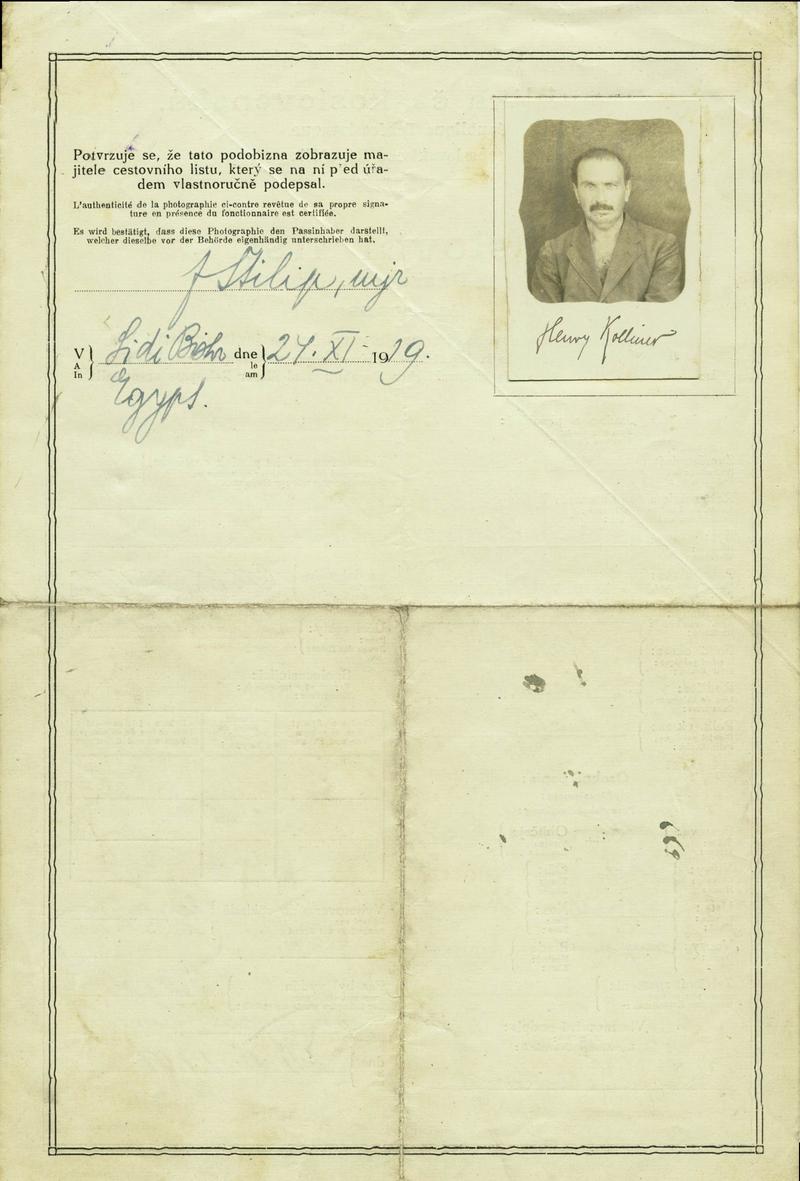 Potvrzuje se, že tato podobizna zobrazuje ma-
jitele cestovního listu, který se na ní před úřa-
dem vlastnoručně podepsal.
L'authenticité de la photographie ci-contre revêtue de sa propre signa-
ture en présence du fonctionnaire est certifiée.
Es wird bestätigt, dass diese Photographie den Passinhaber darstellt,
welcher dieselbe vor der Behörde eigenhändig unterschrieben hat.
mjr
V
A
In
Sidi Bishr dne
le
am
24. XI 1919.
Egypt.
Henry